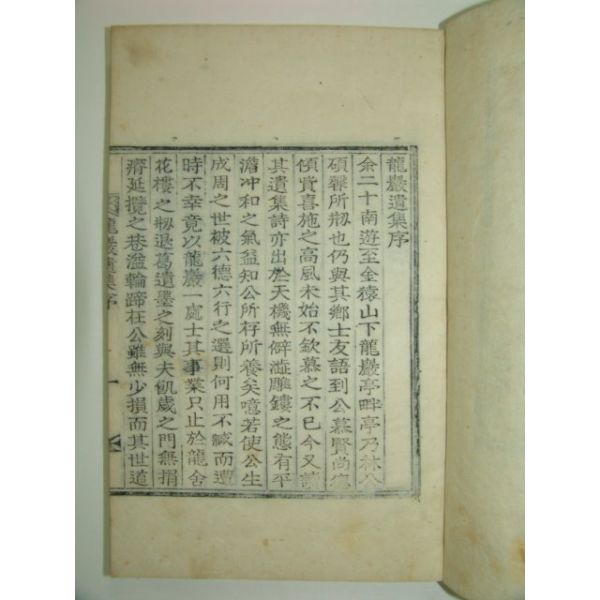 龍巖遺集序
余二十南遊至金猿山下龍巖亭畔亭乃林公
碩馨所刱也仍與其鄉士友語到公慕賢尚德
傾貲喜施之高風未始不欽慕之不已今又讀
其遺集詩亦出於天機無僻澁雕鏤之態有平
澹冲和之氣益知公所存所養矣噫若使公生
成周之世被六德六行之選則何用不臧而遭
時不幸竟以龍巖一處士其事業只止於龍舍
花樓之刱退葛遺墨之刻與夫飢歲之門無捐
瘠延攬之巷溢輪蹄在公雖無少損而其世道
龍巖遺集序
一